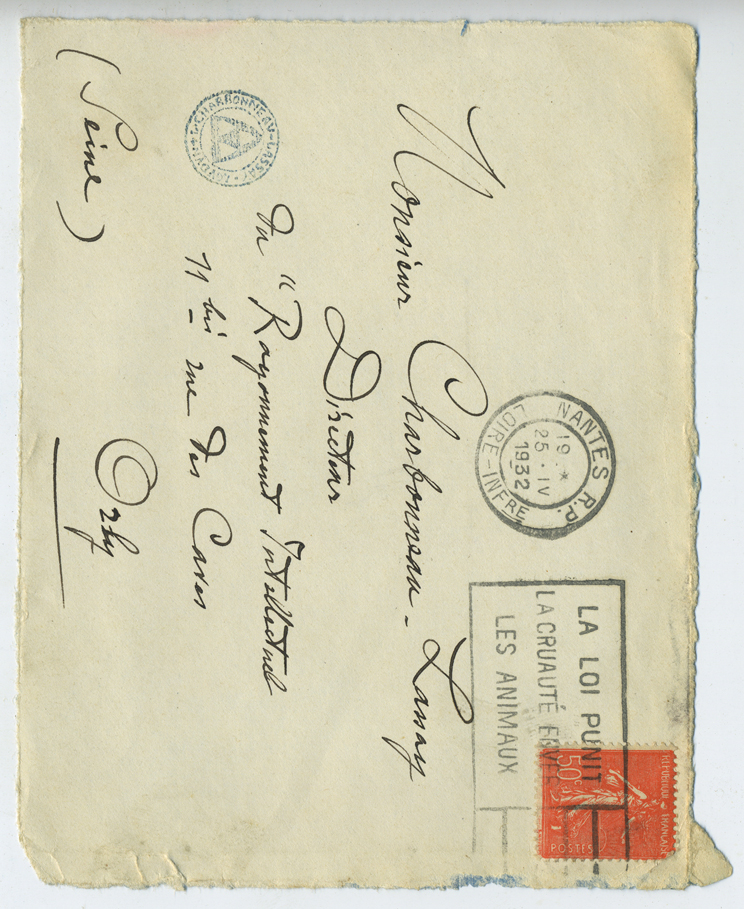 NANTES R.P.
19 *
25 · IV
1932
LOIRE-INFRE
LA LOI PUNIT
LA CRUAUTÉ ENVERS
LES ANIMAUX
REPUBLIQUE FRANÇAISE
50c
POSTES
Monsieur Charbonneau-Lassay
Directeur
du "Rayonnement Intellectuel
11 bis rue des Caves
Orly
(Seine)
CHARBONNEAU-LASSAY
LOUDUN